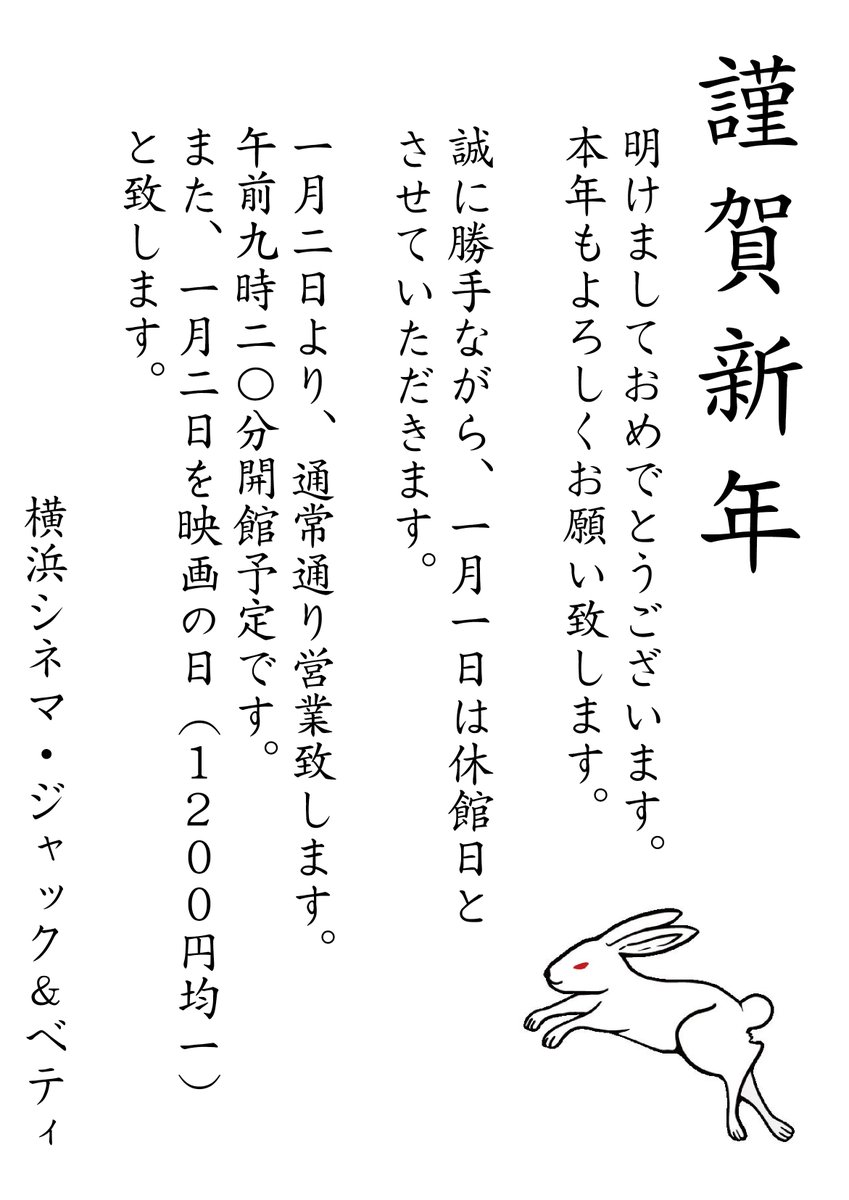 謹賀新年
明けましておめでとうございます。
本年もよろしくお願い致します。
誠に勝手ながら、一月一日は休館日と
させていただきます。
一月二日より、通常通り営業致します。
午前九時二〇分開館予定です。
また、一月二日を映画の日（１２００円均一）
と致します。
横浜シネマ・ジャック＆ベティ